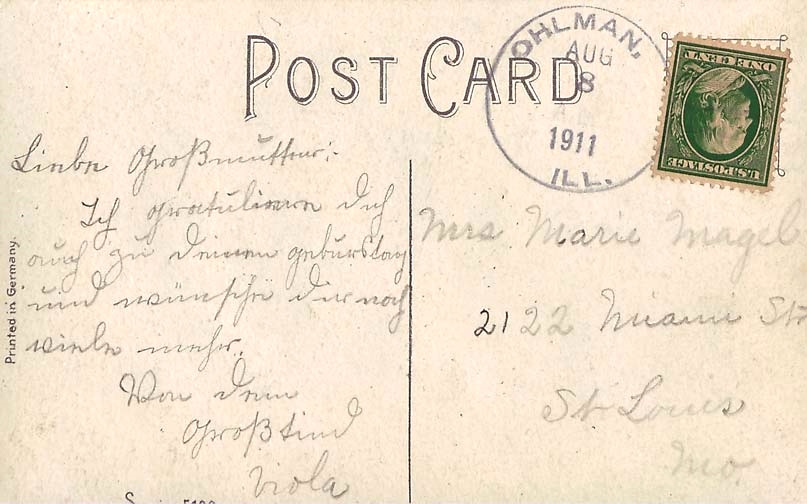 POST CARD
OHLMAN,
AUG
8
1911
ILL.
ONE CENT
U.S. POSTAGE
Liebe Großmutter:-
Ich gratuliere dich
auch zu deinen geburstag
und wünsche dir noch
viele mehr.
Von dein
Großkind
Viola
Mrs Marie Magel
2122 Miami Str
St Louis
Mo.
Printed in Germany.